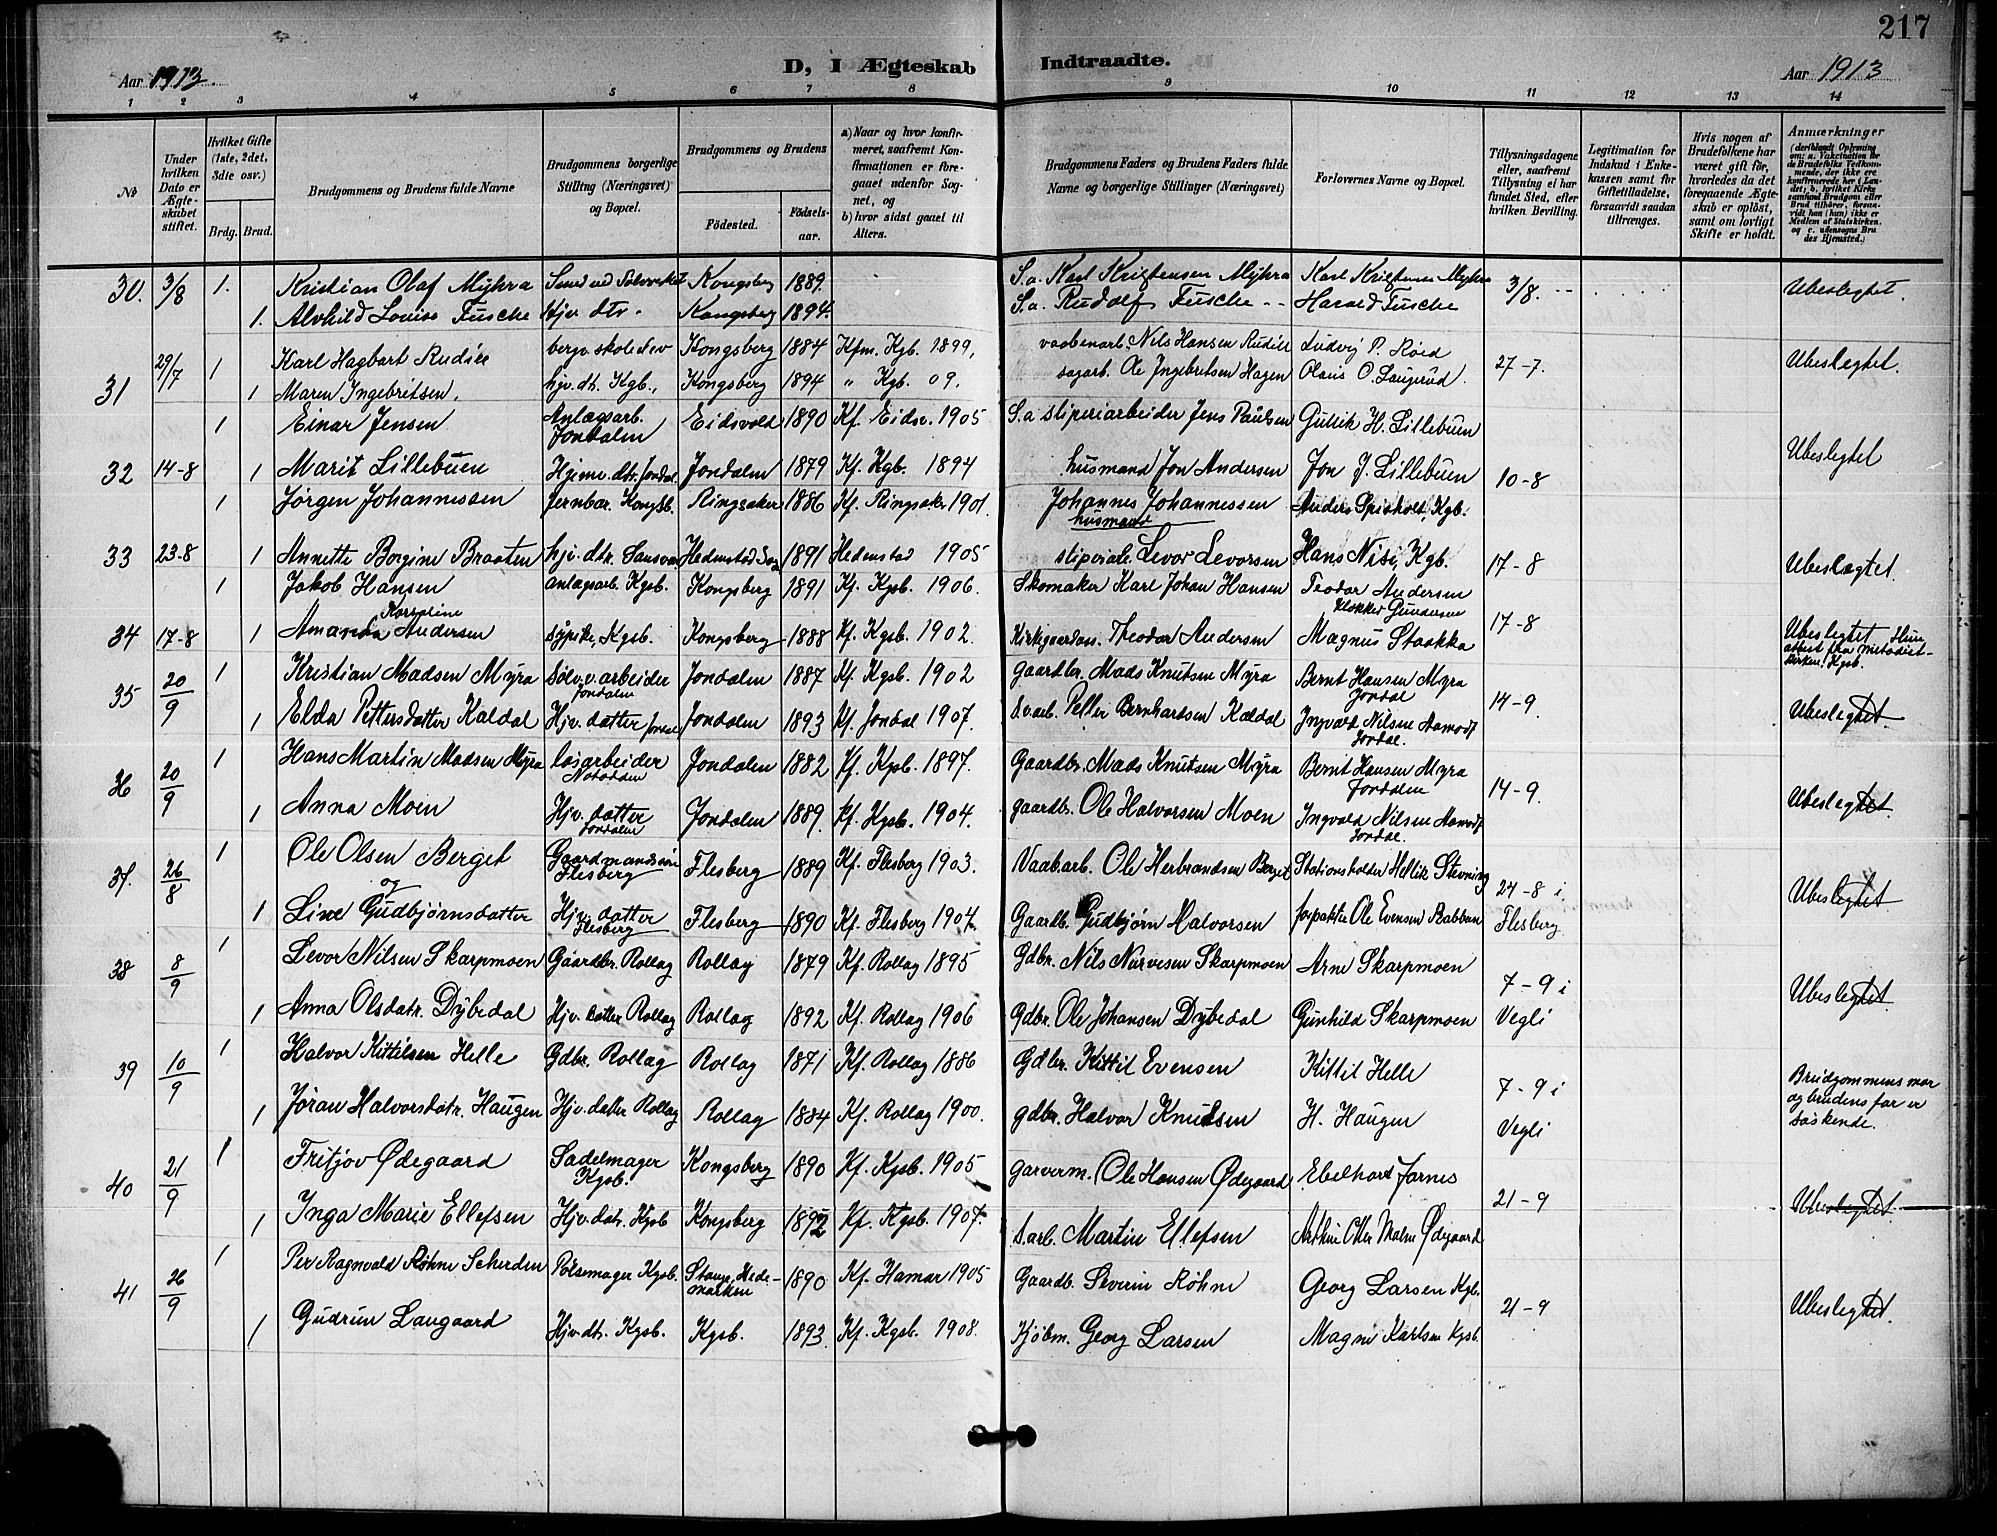 217
Aar 1913.
D, I Ægteskab Indtraadte.
Aar 1913
1 2 3 4 5 6 7 8 9 10 11 12 13 14
No
Under hvilken Dato er Ægteskabet stiftet.
Hvilket Gifte (1ste, 2det, 3die osv.)
Brdg. Brud.
Brudgommens og Brudens fulde Navne
Brudgommens borgerlige Stilling (Næringsvei) og Bopæl.
Brudgommens og Brudens
Fødested.
Fødselsaar.
a) Naar og hvor konfirmeret, saafremt Konfirmationen er foregaaet udenfor Sognet, og
b) hvor sidst gaaet til Alters.
Brudgommens Faders og Brudens Faders fulde Navne og borgerlige Stillinger (Næringsvei)
Forlovernes Navne og Bopæl.
Tillysningsdagene eller, saafremt Tillysning ei har fundet Sted, efter hvilken Bevilling.
Legitimation for Indskud i Enkekassen samt for Giftetilladelse, forsaavidt saadan tiltrænges.
Hvis nogen af Brudefolkene har været gift før, hvorledes da det foregaaende Ægteskab er opløst, samt om lovligt Skifte er holdt.
Anmærkninger (deriblandt Oplysning om: a. Vakcination for de Brudefolks Vedkommende, der ikke ere konfirmerede her i Landet; b. hvilket Kirkesamfund Brudgom eller Brud tilhører, forsaavidt han (hun) ikke er Medlem af Statskirken, og c. udensogns Brudes Hjemsted.)
30. 3/8 1. Kristian Olaf Myhra Smed ved Sølvverket Kongsberg 1889. S.a. Karl Kristensen Myhra Karl Kristensen Myhra 3/8. Ubeslegtet.
1. Alvhild Louise Fusche Hjv. dtr. Kongsberg 1894. S.a. Rudolf Fusche Harald Fusche
31 29/7 1 Karl Hagbart Rudsie bergv. skole elev Kongsberg 1884 Kfm. Kgb. 1899, vaabenarb. Nils Hansen Rudsie Ludvig P. Røed 27-7. Ubeslegtet.
1 Maren Ingebritsen. hjv. dt. Kgb., Kongsberg 1894 " Kgb. 09. sagarb. Ole Ingebretsen Hagen Olaus O. Laugerud.
32 14-8 1 Einar Jensen Anlægsarb. Jondalen Eidsvold 1890 Kf. Eidsv. 1905 S.a sliperiarbeider Jens Paulsen Gulik H. Lillebuen 10-8 Ubeslegtet
1 Marit Lillebuen Hjeme. dtr. Jondal. Jondalen 1879 Kf. Kgb. 1894 husmand Jon Andersen Jon J. Lillebuen
33 23-8 1 Jørgen Johannessen Jernbar. Kongsb. Ringsaker 1886 Kf. Ringsaker 1901. Johannes Johannessen husmand Anders Spisholt, Kgb. 17-8 Ubeslægtet.
1 Annette Borgine Braaten hjv. dtr. Sansvær Hedenstad 1891 Hedenstad 1905 sliperiarb. Levor Levorsen Hans Nisi, Kgb.
34 17-8 1 Jakob Hansen anlægsarb. Kgsb. Kongsberg 1891 Kf. Kgsb. 1906. Skomaker Karl Johan Hansen Teodor Andersen Klokker Gundersen 17-8
1 Amanda Karoline Andersen sypike, Kgsb. Kongsberg 1888 Kf. Kgsb. 1902. Kirkegaardsas. Theodor Andersen Magnus Staakka Ubeslegtet Hun attest fra metodistkirken, Kgsb.
35 20/9 1 Kristian Madsen Myra Sølvv. arbeider Jondalen Jondalen 1887 Kf. Kgsb. 1902 gaardbr. Mads Knutsen Myra Bernt Hansen Myra Jordal 14-9. Ubeslegtet.
1 Elda Pettersdatter Kaldal Hjv. datter Jondal Jondalen 1893 Kf. Jondal 1907. S.v.arb. Petter Bernhardsen Kaldal Ingvald Nilsen Aamodt Jordal.
36 20/9 1 Hans Martin Madsen Myra løsarbeider Notodden Jondalen 1882 Kf. Kgsb. 1897. Gaardbr. Mads Knutsen Myra Bernt Hansen Myra Jondalen 14-9. Ubeslegtet.
1 Anna Moen Hjv. datter Jondalen Jondalen 1889. Kf. Kgsb. 1904. gaardbr. Ole Halvorsen Moen Ingvald Nilsen Aamodt Jordal.
37. 26/8 1 Ole Olsen Berget Gaardmandssøn Flesberg Flesberg 1889 Kf. Flesberg 1903. Vaabarb. Ole Herbrandsen Berget Stationsholder Hellik Stevning 24-8 i Flesberg Ubeslegtet
og
1 Line Gudbjørnsdatter Hjv. datter Flesberg Flesberg 1890 Kf. Flesberg 1904. Gaardb. Gudbjørn Halvorsen forpakter Ole Evensen Rabban
38 8/9 1 Levor Nilsen Skarpmoen Gaardbr. Rollag Rollag 1879 Kf. Rollag 1895 Gdbr. Nils Narvesen Skarpmoen Arne Skarpmoen 7-9 i Vegli Ubeslegtet
1 Anna Olsdatr. Dybedal Hjv. datter Rollag Rollag 1892 Kf. Rollag 1906 Gdbr. Ole Johansen Dybedal Gunhild Skarpmoen
39 10/9 1 Halvor Kittilsen Helle Gdbr. Rollag Rollag 1871 Kf. Rollag 1886 Gdbr. Kittil Evensen Kittil Helle 7-9 i Vegli Brudgommens mor og brudens far er søskende.
1 Jøran Halvorsdatr. Haugen Hjv. datter Rollag Rollag 1884 Kf. Rollag 1900. gdbr. Halvor Knudsen H. Haugen
40 21/9 1 Fritjov Ødegaard Sadelmager Kgsb. Kongsberg 1890 Kf. Kgsb. 1905 garverm. Ole Hansen Ødegaard Ebelhart Jarnes 21-9 Ubeslegtet.
1 Inga Marie Ellefsen Hjv. datr. Kgsb Kongsberg 1892 Kf. Kgsb. 1907. S.arb. Martin Ellefsen Arthur Otto Malm Ødegaard
41 26/9 1 Per Ragnvald Røhne Scherden Pølsemager Kgsb. Stange, Hedemarken 1890 Kf. Hamar 1905 Gaardb. Severin Røhne Georg Larsen Kgb. 21-9 Ubeslegtet.
1 Gudrun Langaard Hjv. dt. Kgsb. Kgsb. 1893. Kf. Kgsb. 1908. Kjøbm. Georg Larsen Magne Karlsen Kgsb.